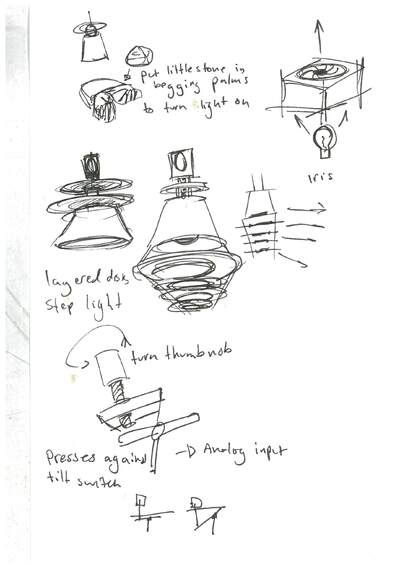 put little stone in
begging palms
to turn light on
Iris
layered
step light
turn thumbnob
Presses against
tilt switch
Analog input